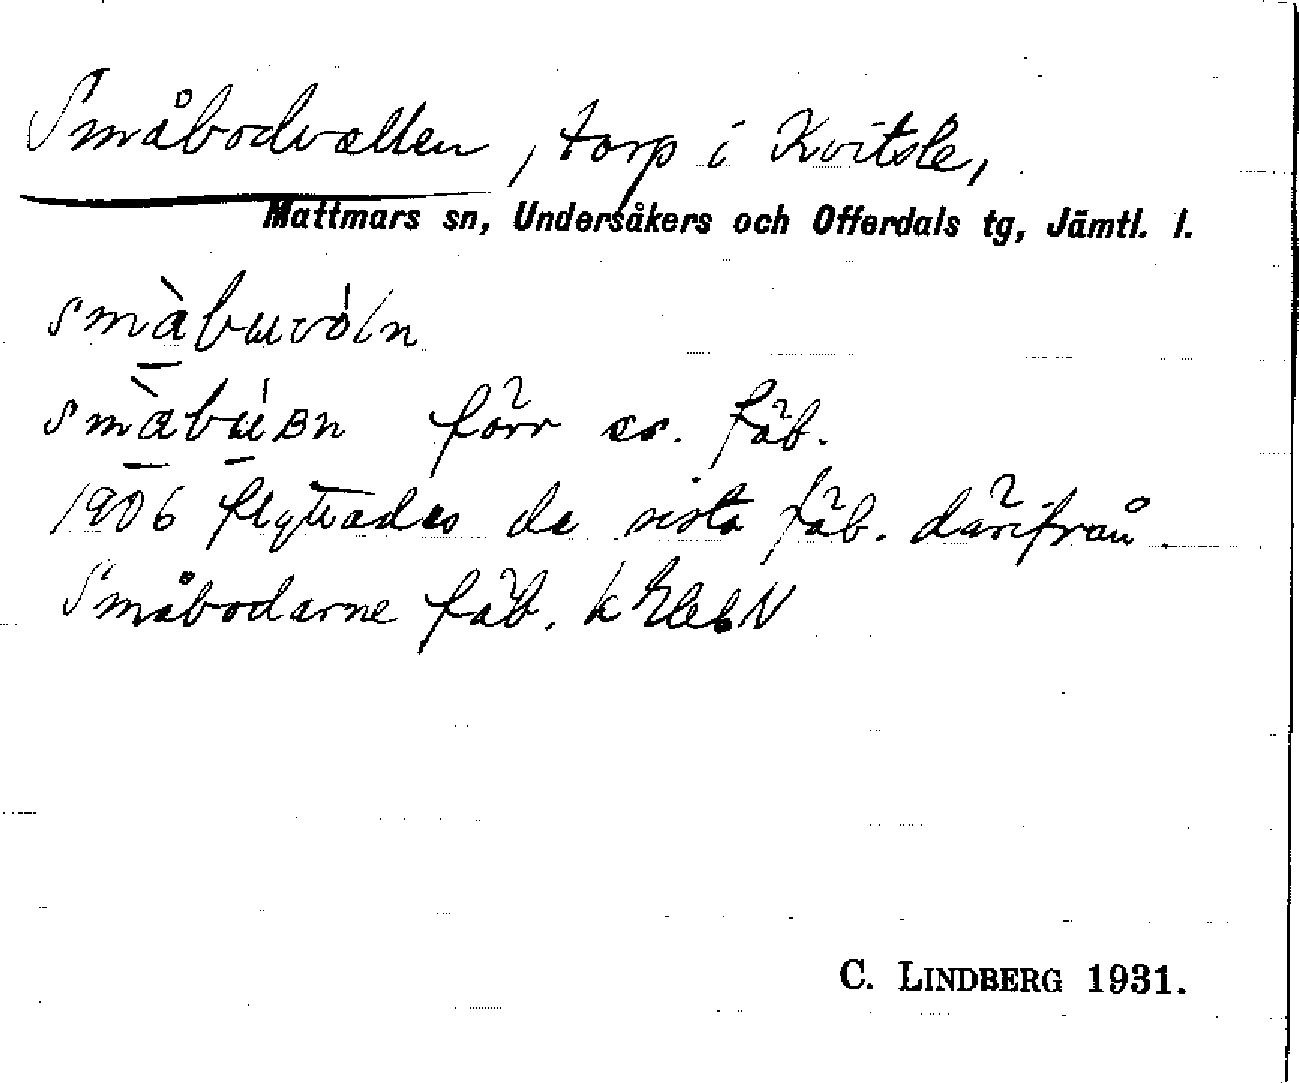 Småbodvallen, torp i Kvitsle,
Mattmars sn, Undersåkers och Offerdals tg, Jämtl. l.
smàbuvóln
smàbúʙn förr fäb.
1906 flyttades de sista fäb. därifrån.
Småbodarne fäb. k
C. LINDBERG 1931.